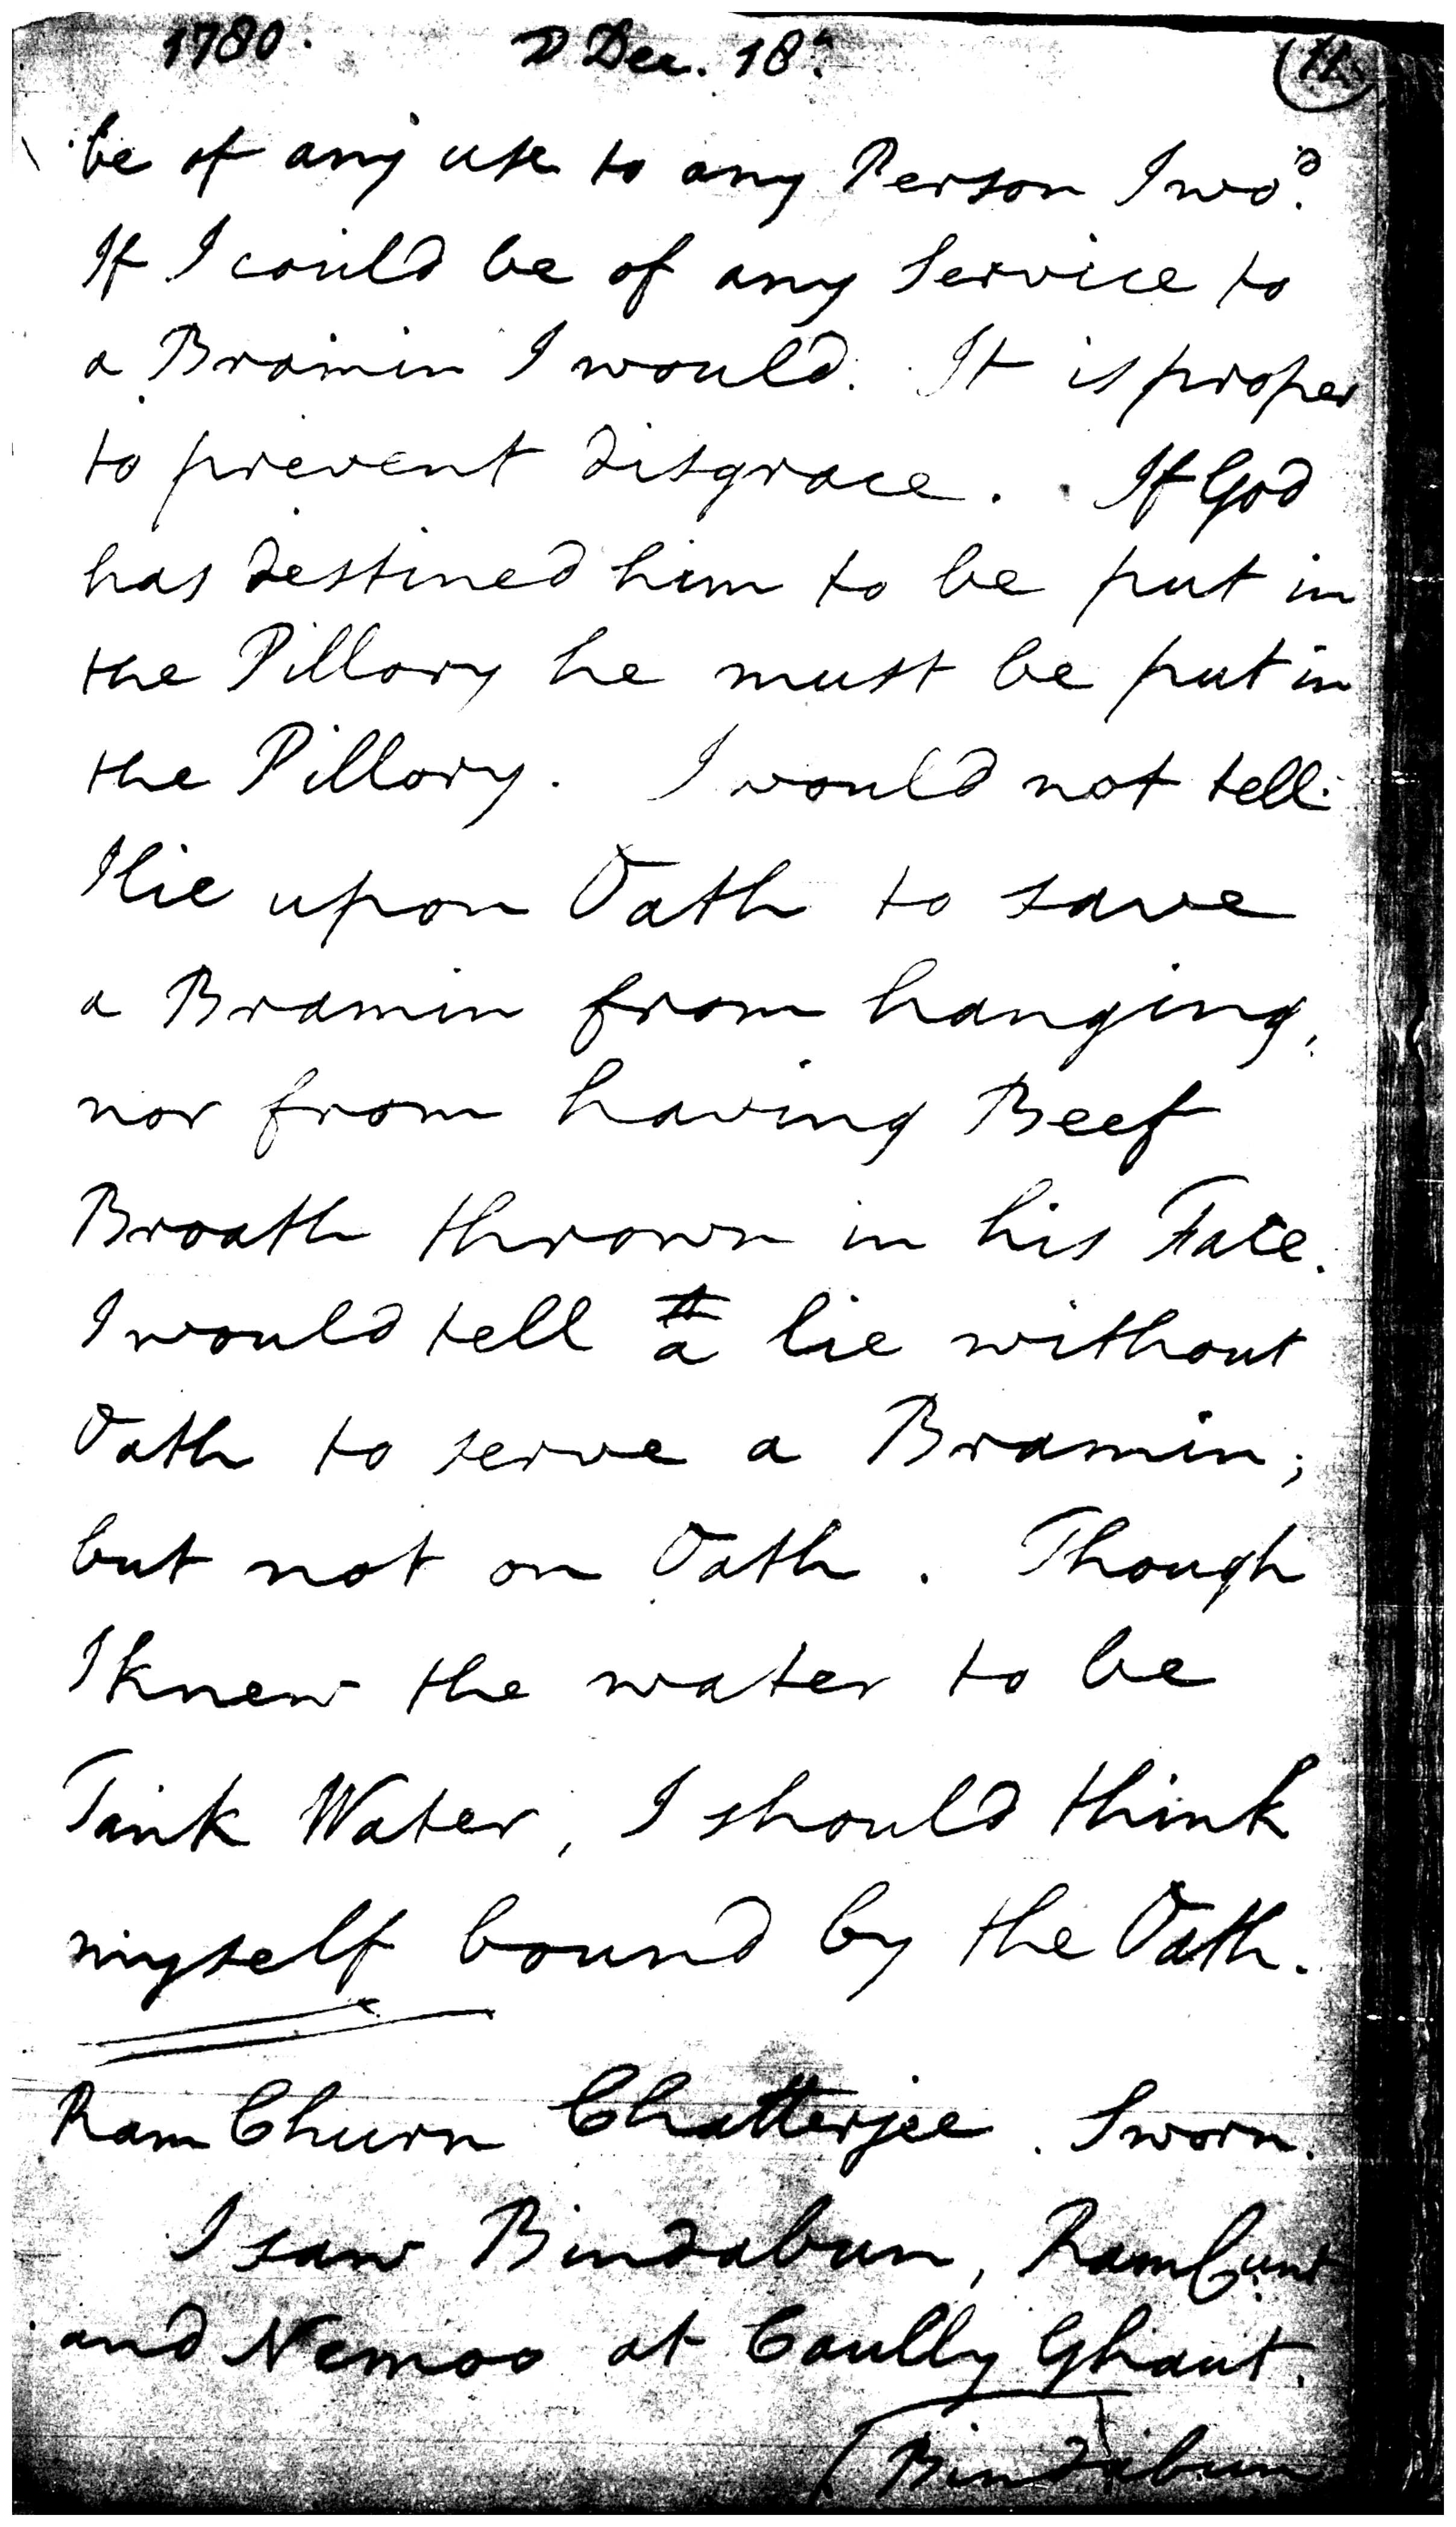 1780. ☽ Dec. 18. 11.
be of any use to any Person I wo.d
If I could be of any Service to
a Bramin I would. It is proper
to prevent disgrace. If God
has destined him to be put in
the Pillory he must be put in
the Pillory. I would not tell
I lie upon Oath to save
a Bramin from hanging,
nor from having Beef
Broath thrown in his Face.
I would tell a lie without
Oath to serve a Bramin;
but not on Oath. Though
I knew the water to be
Tank Water, I should think
myself bound by the Oath.
Ram Churn Chatterjee. Sworn.
I saw Bindabun, RamCunt
and Nemoo at Caully Ghaut.
Bindabun